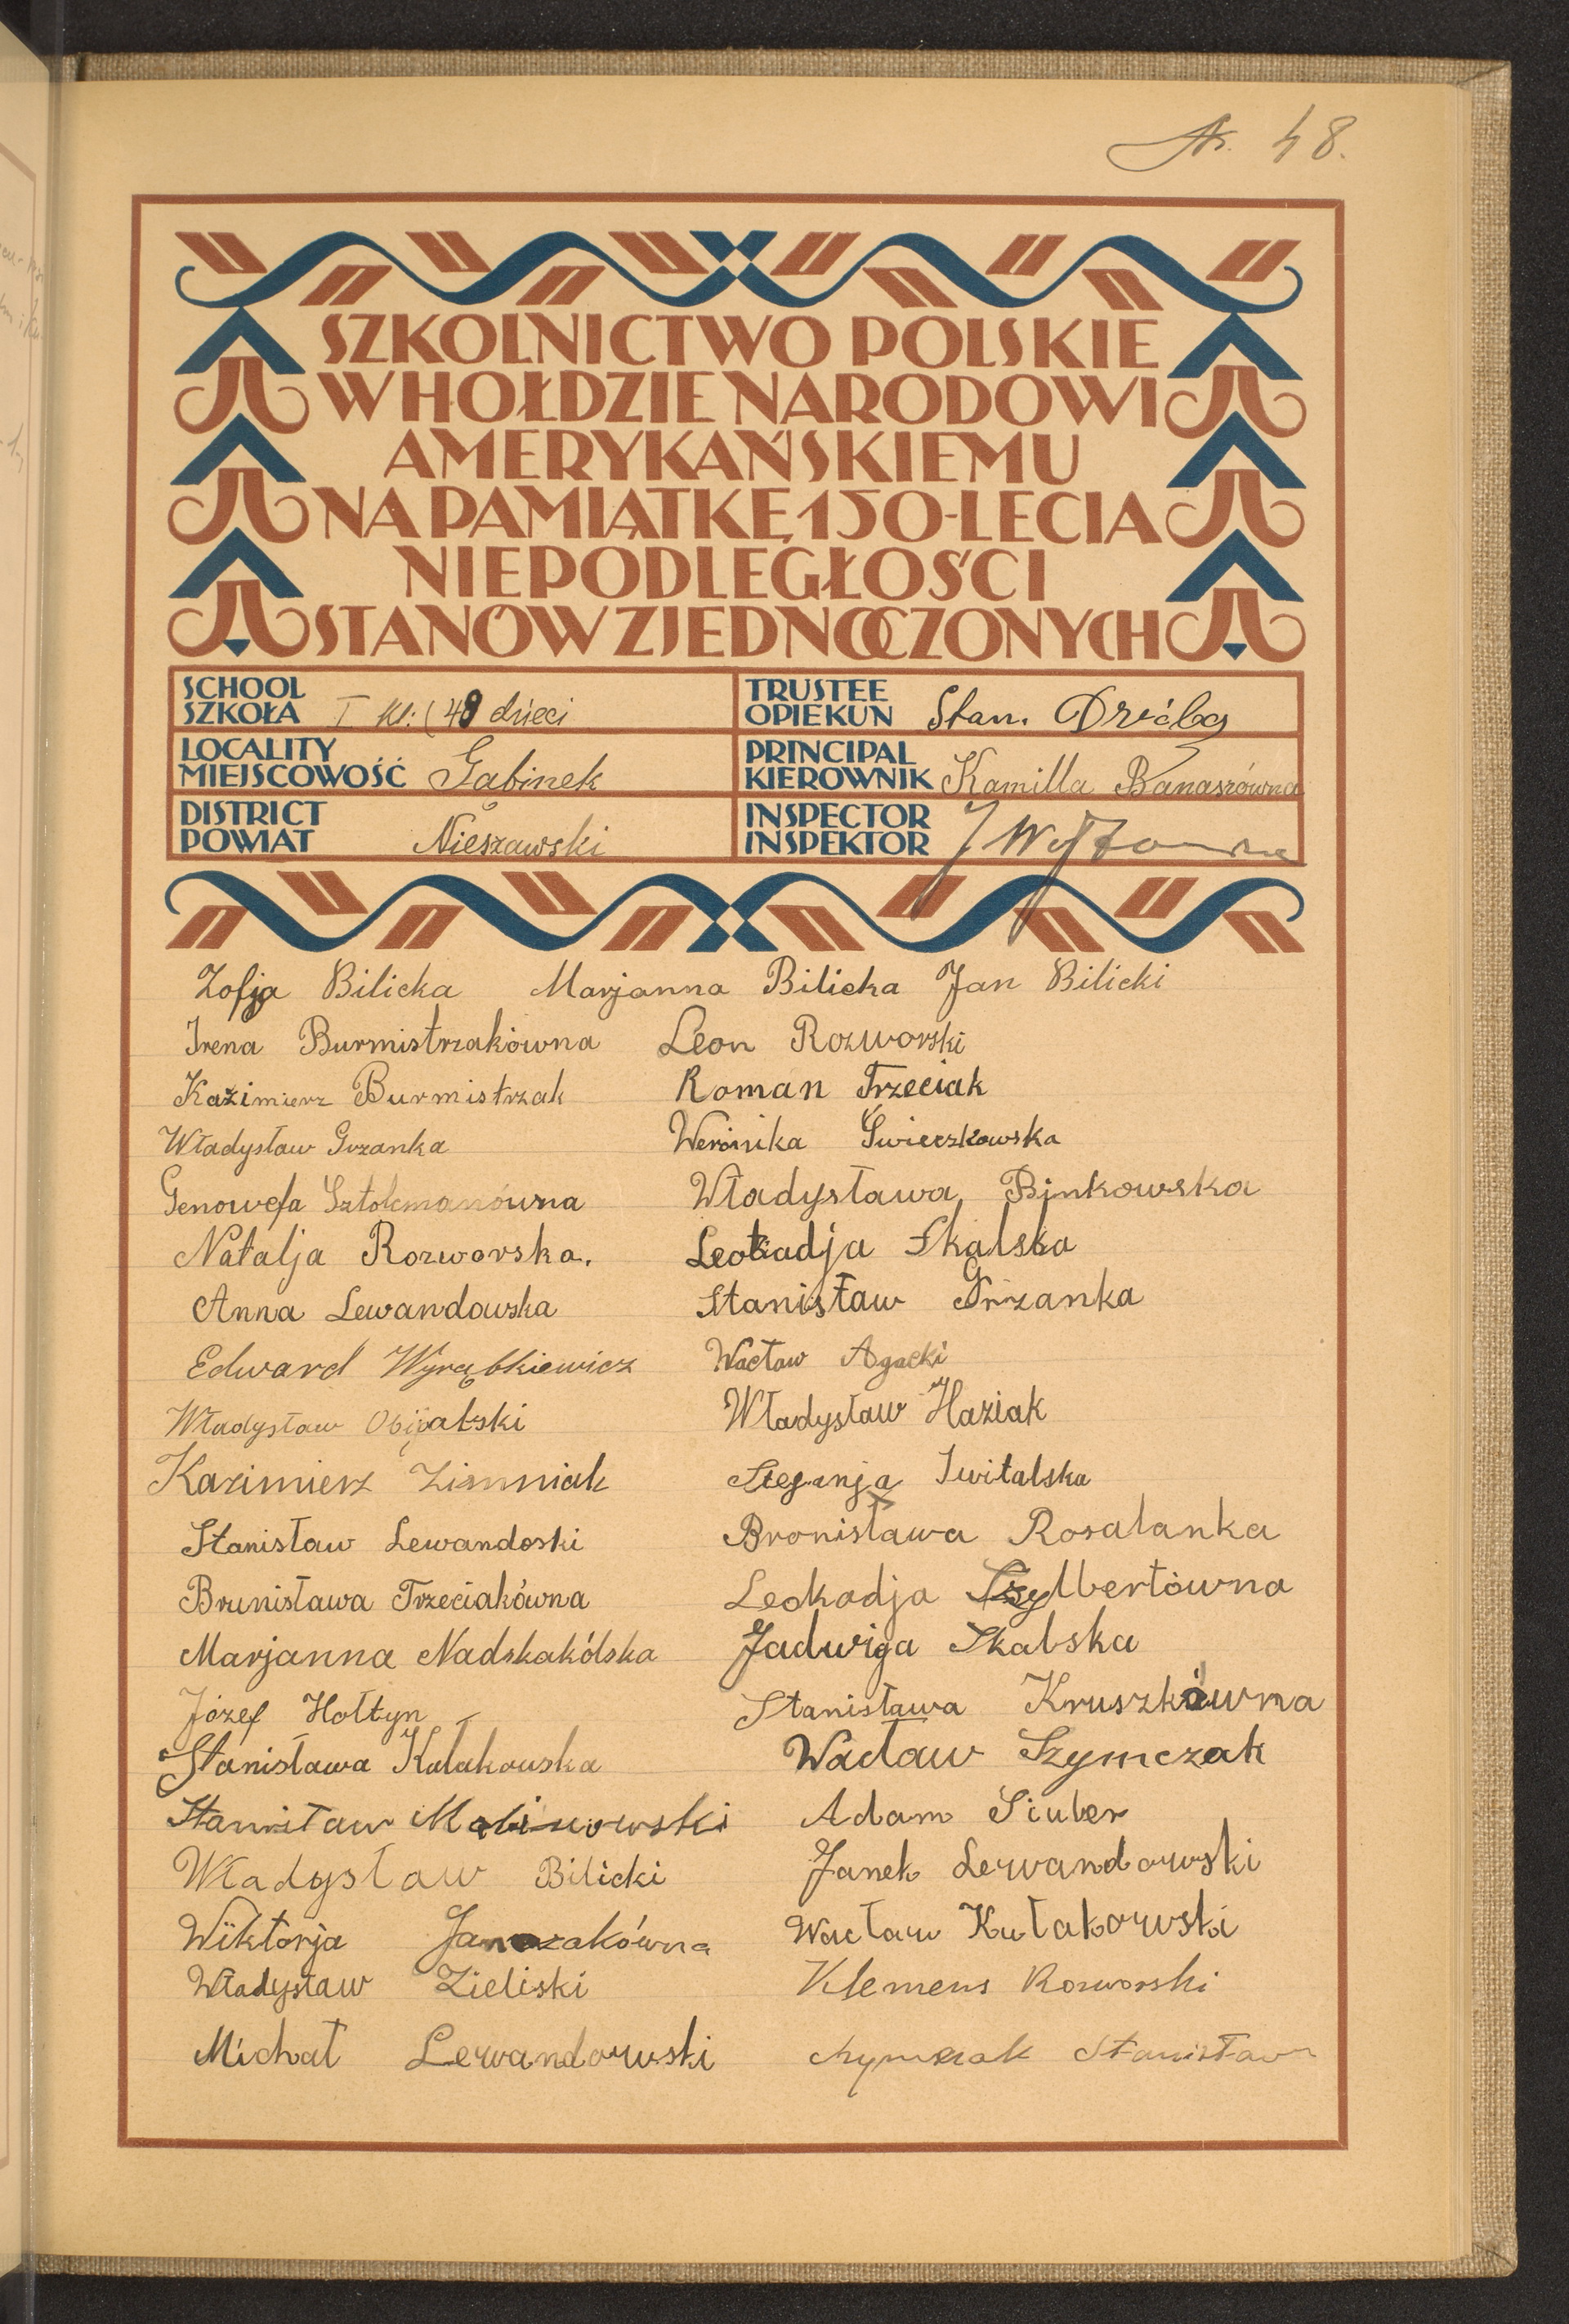 48.
SZKOLNICTWO POLSKIE
W HOŁDZIE NARODOWI
AMERYKAŃSKIEMU
NA PAMIĄTKĘ 150-LECIA
NIEPODLEGŁOŚCI
STANÓW ZJEDNOCZONYCH
SCHOOL
SZKOŁA I kl: (48 dzieci
TRUSTEE
OPIEKUN Stan.
LOCALITY
MIEJSCOWOŚĆ Gąbinek
PRINCIPAL
KIEROWNIK Kamilla Banaszówna
DISTRICT
POWIAT Nieszawski
INSPECTOR
INSPEKTOR
Zofja Bilicka Marjanna Bilicka Jan Bilicki
Irena Burmistrzakówna Leon Rozworski
Kazimierz Burmistrzak Roman Trzeciak
Władysław Grzanka Weronika Świeczkowska
Genowefa Sztolcmanówna Władysława Binkowska
Natalja Rozworska. Leokadja Skalska
Anna Lewandowska Stanisław Grzanka
Edward Wyrąbkiewicz Wacław Agacki
Władysław Władysław Haziak
Kazimierz Zimniak Stefanja Switalska
Stanisław Lewandoski Bronisława Rosalanka
Brunisława Trzeciakówna Leokadja Szylbertówna
Marjanna Nadskakólska Jadwiga Skalska
Józef Hołtyn Stanisława Kruszkówna
Stanisława Kułakowska Wacław Szymczak
Stanisław Malinowski Adam Siuber
Władysław Bilicki Janek Lewandowski
Wiktorja Janczakówna Wacław Kułakowski
Władysław Zieliski Klemens Rozworski
Michał Lewandowski Stanisław